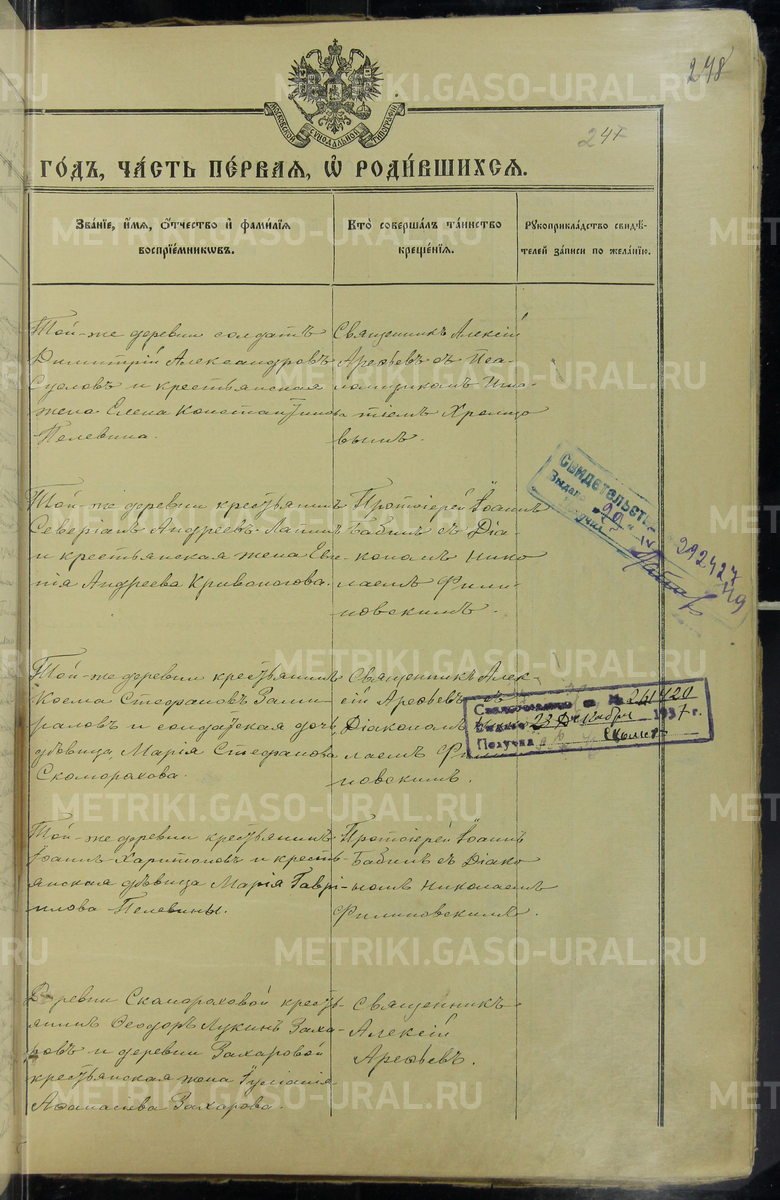 248
247
МОСКОВСКОЙ СѴНОДАЛЬНОЙ ТИПОГРАФІИ
ГО́ДЪ, ЧА́СТЬ ПЕ́РВАЯ, Ѿ РОДИ́ВШИХСЯ.
Зва́нїе, и́мѧ, ѻ҆́тчество и҆ фами́лїѧ
воспрїе́мникωвъ.
Кто̀ соверша́лъ та́инство
креще́нїѧ.
Рꙋкоприкла́дство свидѣ́-
телей за́писи по жела́нїю.
Той-же деревни солдатъ
Димитрій Александровъ
Сусловъ и крестьянская
жена Елена Константинова
Пелевина.
Священникъ Алексій
Арефьевъ съ Пса-
ломщикомъ Игна-
тіемъ Хромцо
вымъ.
Той-же деревни крестьянинъ
Северіанъ Андреевъ Лапинъ
и крестьянская жена Евге
нія Андреева Кривоногова.
Протоіерей Іоаннъ
Бабинъ съ Діа-
кономъ Нико
лаемъ Фили-
повскимъ.
Свидетельств
Выдано
292427
Той-же деревни крестьянинъ
Косма Стефановъ Заши-
раловъ и солдатская дочь
дѣвица Марія Стефанова
Скоморохова.
Священникъ Алек
сій Арефьевъ съ
Діакономъ
лаемъ
повскимъ.
№ 261420
Выдано 23 Декабря 1937 г.
Получил
Той-же деревни крестьянинъ
Іоаннъ Харитоновъ и кресть-
янская дѣвица Марія Гаврі-
илова Пелевины.
Протоіерей Іоаннъ
Бабинъ съ Діако
номъ Николаемъ
Филиповскимъ.
Деревни Скомороховой кресть-
янинъ Ѳеодоръ Лукинъ Заха-
ровъ и деревни Захаровой
крестьянская жена Іуліанія
Аѳанасіева Захарова.
Священникъ
Алексій
Арефьевъ.
METRIKI.GASO-URAL.RU